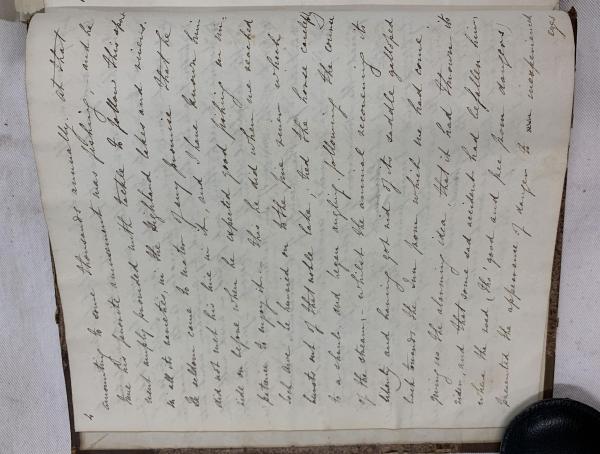 4
amounting to some thousands annually. At that
time his favorite amusement was fishing, and he
went amply provided with tackle to follow this sport
in all its varieties, in the Highland lakes and rivers.
He seldom came to water of any promise that he
did not wet his line in it, and I have known him
ride on before when he expected good fishing in im:
patience to enjoy it; this he did when we reached
Loch Awe, he hurried on to the fine river which
bursts out of that noble lake, tied the horse carefully
to a shrub and began angling following the course
of the stream; whilst the animal recovering its
liberty and having got rid of its saddle galloped
back towards the Inn from which we had come
giving us the alarming idea that it had thrown its
rider, and that some sad accident had befallen him
where the road (tho' good and free from dangers)
presented the appearance of danger to inexperienced
eyes